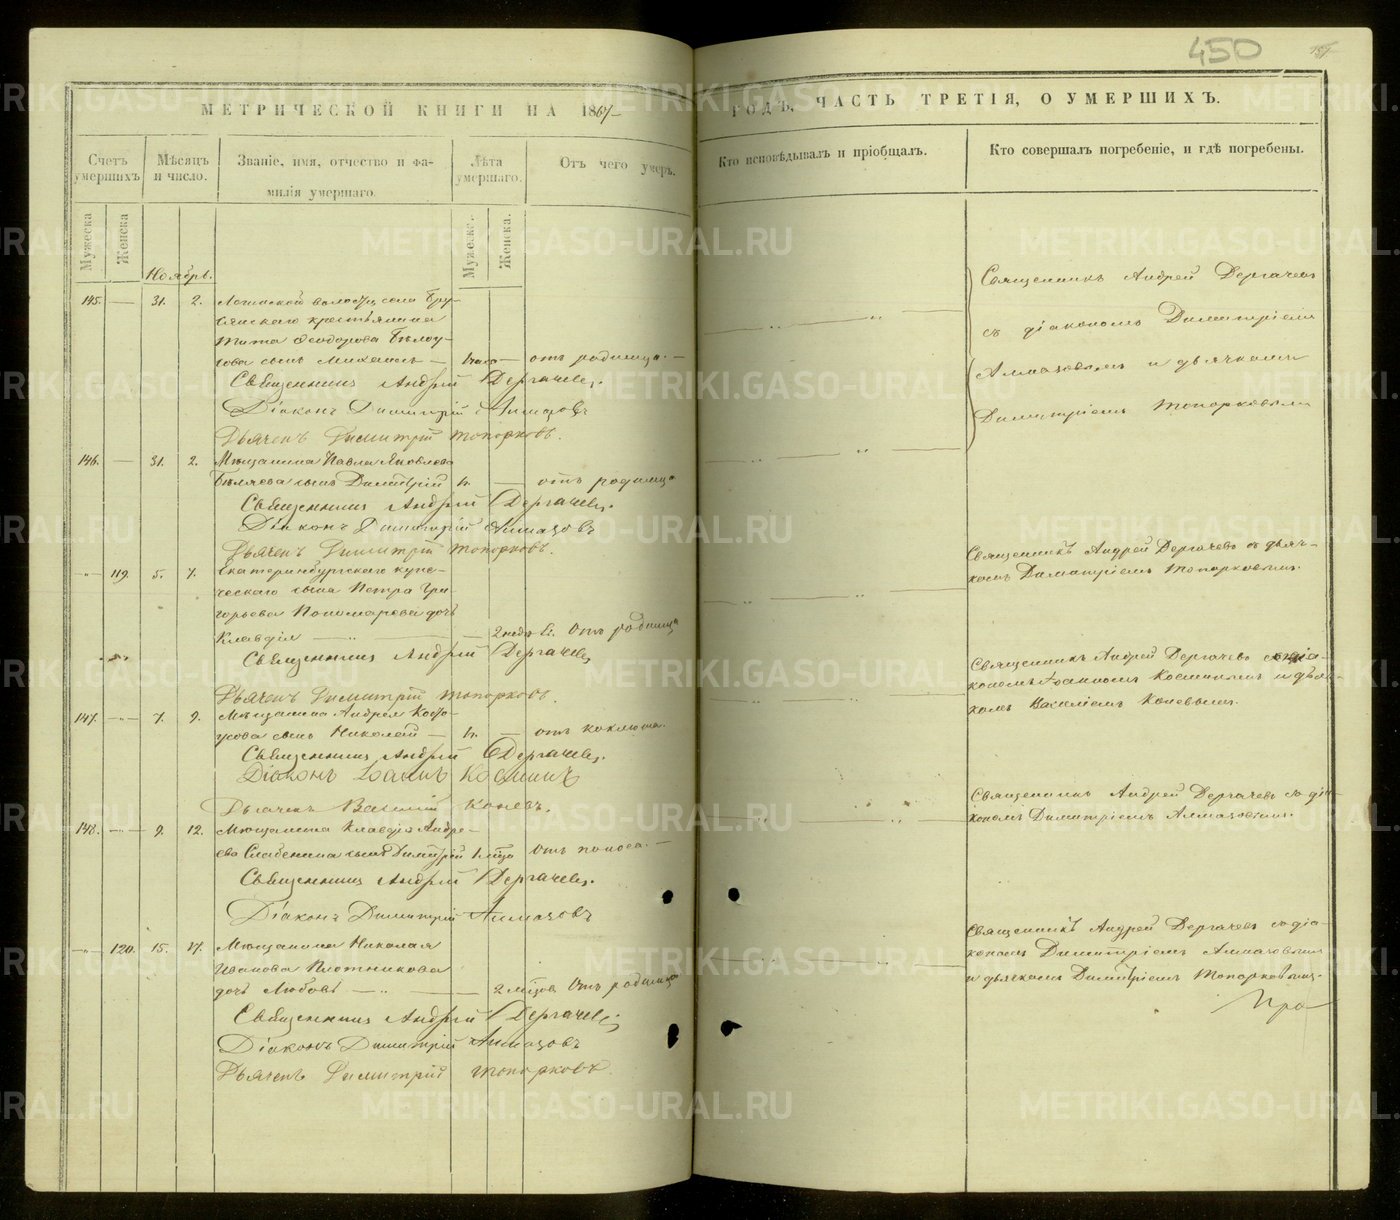 450
МЕТРИЧЕСКОЙ КНИГИ НА 1867
ГОДЪ, ЧАСТЬ ТРЕТІЯ, О УМЕРШИХЪ.
Счетъ умершихъ.
Мѣсяцъ и число.
Званіе, имя, отчество и фа-
милія умершаго.
Лѣта умершаго.
Отъ чего умеръ.
Кто исповѣдывалъ и пріобщалъ.
Кто совершалъ погребеніе, и гдѣ погребены.
Мужеска
Женска
Мужеск.
Женска.
Ноябрь.
145. — 31. 2. волости, села Бру-
сянскаго крестьянина
Тита Ѳеодорова
сынъ Михаилъ — отъ родимца. —
Священникъ Андрей Дергачевъ
съ діакономъ Димитріемъ
Алмазовымъ и дьячкомъ
Димитріемъ Топорковымъ
Священникъ Андрей Дергачевъ.
Діаконъ Димитрій Алмазовъ
Дьячекъ Димитрій Топорковъ.
146. — 31. 2. Мѣщанина Павла Яковлева
Бѣляева сынъ Димитрій — отъ родимца
Священникъ Андрей Дергачевъ.
Діаконъ Димитрій Алмазовъ
Дьячекъ Димитрій Топорковъ.
119. 5. 7. Екатеринбургскаго купе-
ческаго сына Петра Гри-
горьева Пономарева дочь
Клавдія — 2 нед. Отъ родимца
Священникъ Андрей Дергачевъ съ дьяч-
комъ Димитріемъ Топорковымъ.
Священникъ Андрей Дергачевъ
Дьячекъ Димитрій Топорковъ.
147. — 7. 9. Мѣщанина Андрея
сынъ Николай — отъ коклюша.
Священникъ Андрей Дергачевъ съ діа-
кономъ Іоанномъ Косминымъ и дьяч-
комъ Василіемъ Коневымъ.
Священникъ Андрей Дергачевъ.
Діаконъ Іоаннъ Косминъ
Дьячекъ Василій Коневъ.
148. — 9. 12. Мѣщанина Клавдія Андре-
ева сынъ Димитрій Отъ поноса. —
Священникъ Андрей Дергачевъ съ діа-
кономъ Димитріемъ Алмазовымъ.
Священникъ Андрей Дергачевъ.
Діаконъ Димитрій Алмазовъ
120. 15. 17. Мѣщанина Николая
Иванова Плотникова
дочь Любовь — 2 мѣсяц. Отъ родимца
Священникъ Андрей Дергачевъ съ діа-
кономъ Димитріемъ Алмазовымъ
и дьячкомъ Димитріемъ Топорковымъ.
Священникъ Андрей Дергачевъ
Діаконъ Димитрій Алмазовъ
Дьячекъ Димитрій Топорковъ.
METRIKI.GASO-URAL.RU